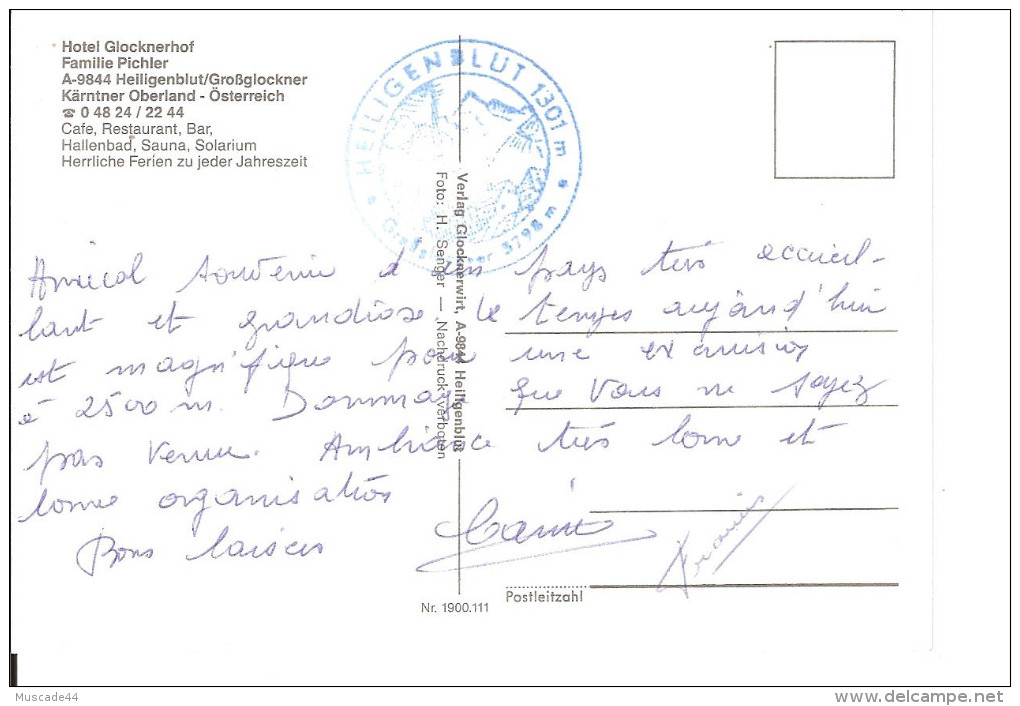 Hotel Glocknerhof
Familie Pichler
A-9844 Heiligenblut/Großglockner
Kärntner Oberland - Österreich
☎ 0 48 24 / 22 44
Cafe, Restaurant, Bar,
Hallenbad, Sauna, Solarium
Herrliche Ferien zu jeder Jahreszeit
HEILIGENBLUT 1301 m
Großglockner 3798 m
Verlag Glocknerwirt, A-9844 Heiligenblut
Foto: H. Senger — Nachdruck verboten
Amical souvenir d'un pays très accueil-
lant et grandiose. Le temps aujourd'hui
est magnifique pour une excursion
à 2500 m. Dommage que vous ne soyez
pas venue. Ambiance très bonne et
bonne organisation
Bons baisers
Postleitzahl
Nr. 1900.111
Muscade44
www.delcampe.net